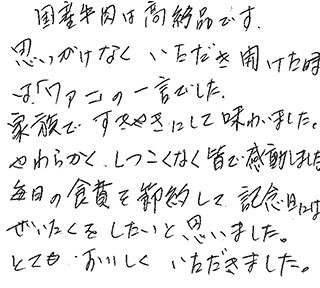 国産牛肉は高級品です。
思いがけなく いただき開けた時
は「ワァー」の一言でした。
家族で すきやきにして味わいました。
やわらかく、しつこくなく皆で感動しました
毎日の食費を節約して 記念日には
ぜいたくをしたいと思いました。
とても おいしく いただきました。